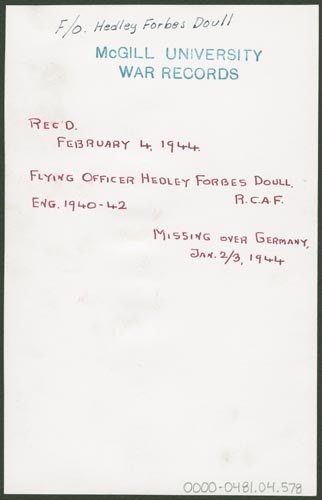 F/o. Hedley Forbes Doull
McGILL UNIVERSITY
WAR RECORDS
REC'D.
FEBRUARY 4, 1944.
FLYING OFFICER HEDLEY FORBES DOULL.
ENG. 1940-42 R.C.A.F.
MISSING OVER GERMANY,
JAN. 2/3, 1944
0000-0481.04.578